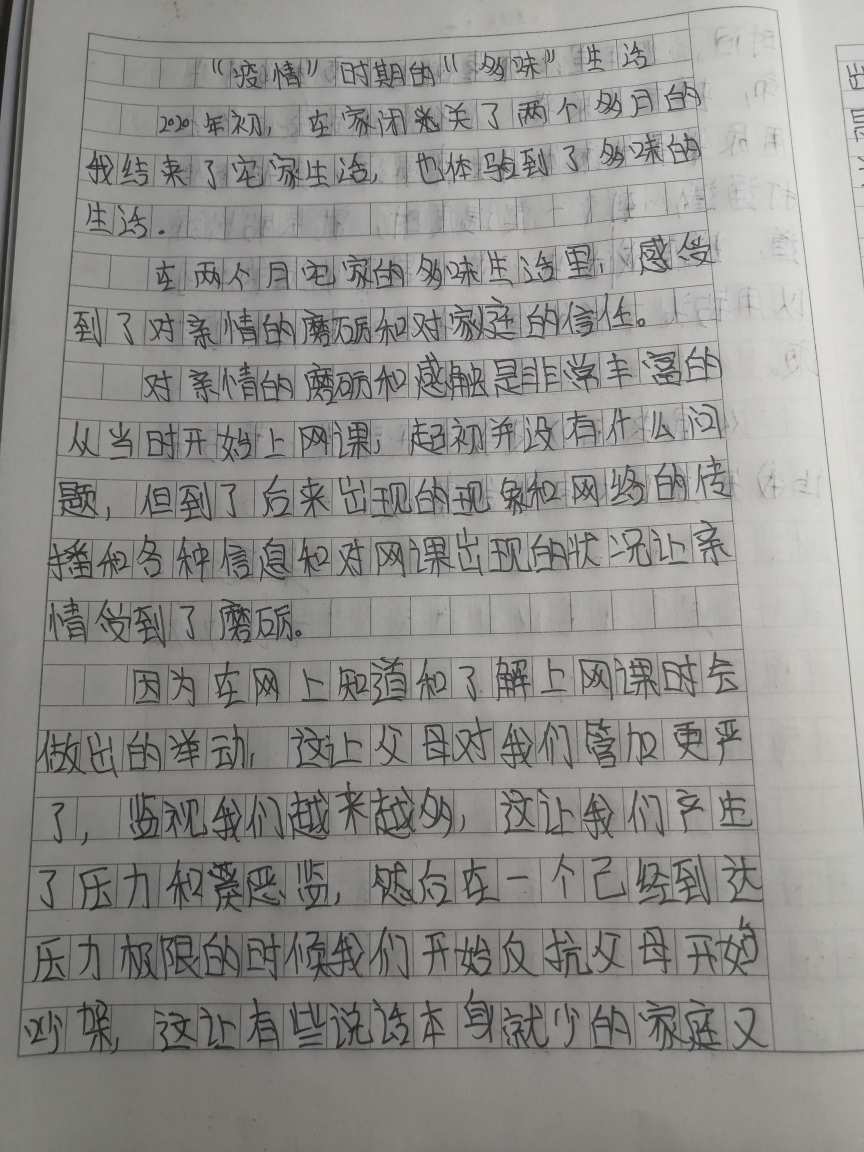 “疫情”时期的“多味”生活
2020年初，在家闭关了两个多月的
我结束了宅家生活，也体验到了多味的
生活.
在两个月宅家的多味生活里，感受
到了对亲情的磨砺和对家庭的信任。
对亲情的磨砺和感触是非常丰富的
从当时开始上网课，起初并没有什么问
题，但到了后来出现的现象和网络的传
播和各种信息和对网课出现的状况让亲
情受到了磨砺。
因为在网上知道和了解上网课时会
做出的举动，这让父母对我们管加更严
了，监视我们越来越多，这让我们产生
了压力和恶监，然后在一个已经到达
压力极限的时候我们开始反抗父母开始
吵架，这让有些说话本身就少的家庭又
出